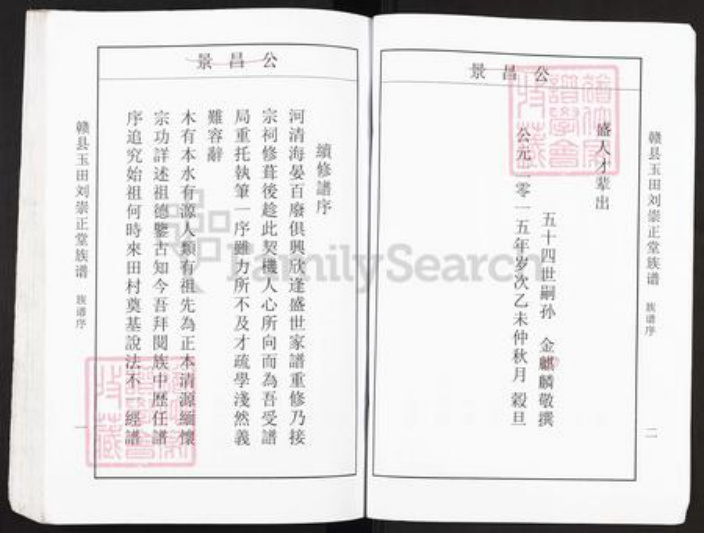 景昌公
盛人才辈出
五十四世嗣孙 金麒麟敬撰
公元二零一五年岁次乙未仲秋月 毂旦
赣县玉田刘崇正堂族谱 族谱序 二
景昌公
續修譜序
河清海晏百廢俱興欣逢盛世家譜重修乃接
宗祠修葺後趁此契機人心所向而為吾受譜
局重托執筆一序雖力所不及才疏學淺然義
難容辭
木有本水有源人類有祖先為正本清源緬懷
宗功詳述祖德鑒古知今吾拜閱族中歷任譜
序追究始祖何時來田村奠基說法不一經譜
赣县玉田刘崇正堂族谱 族谱序 一
FamilySearch